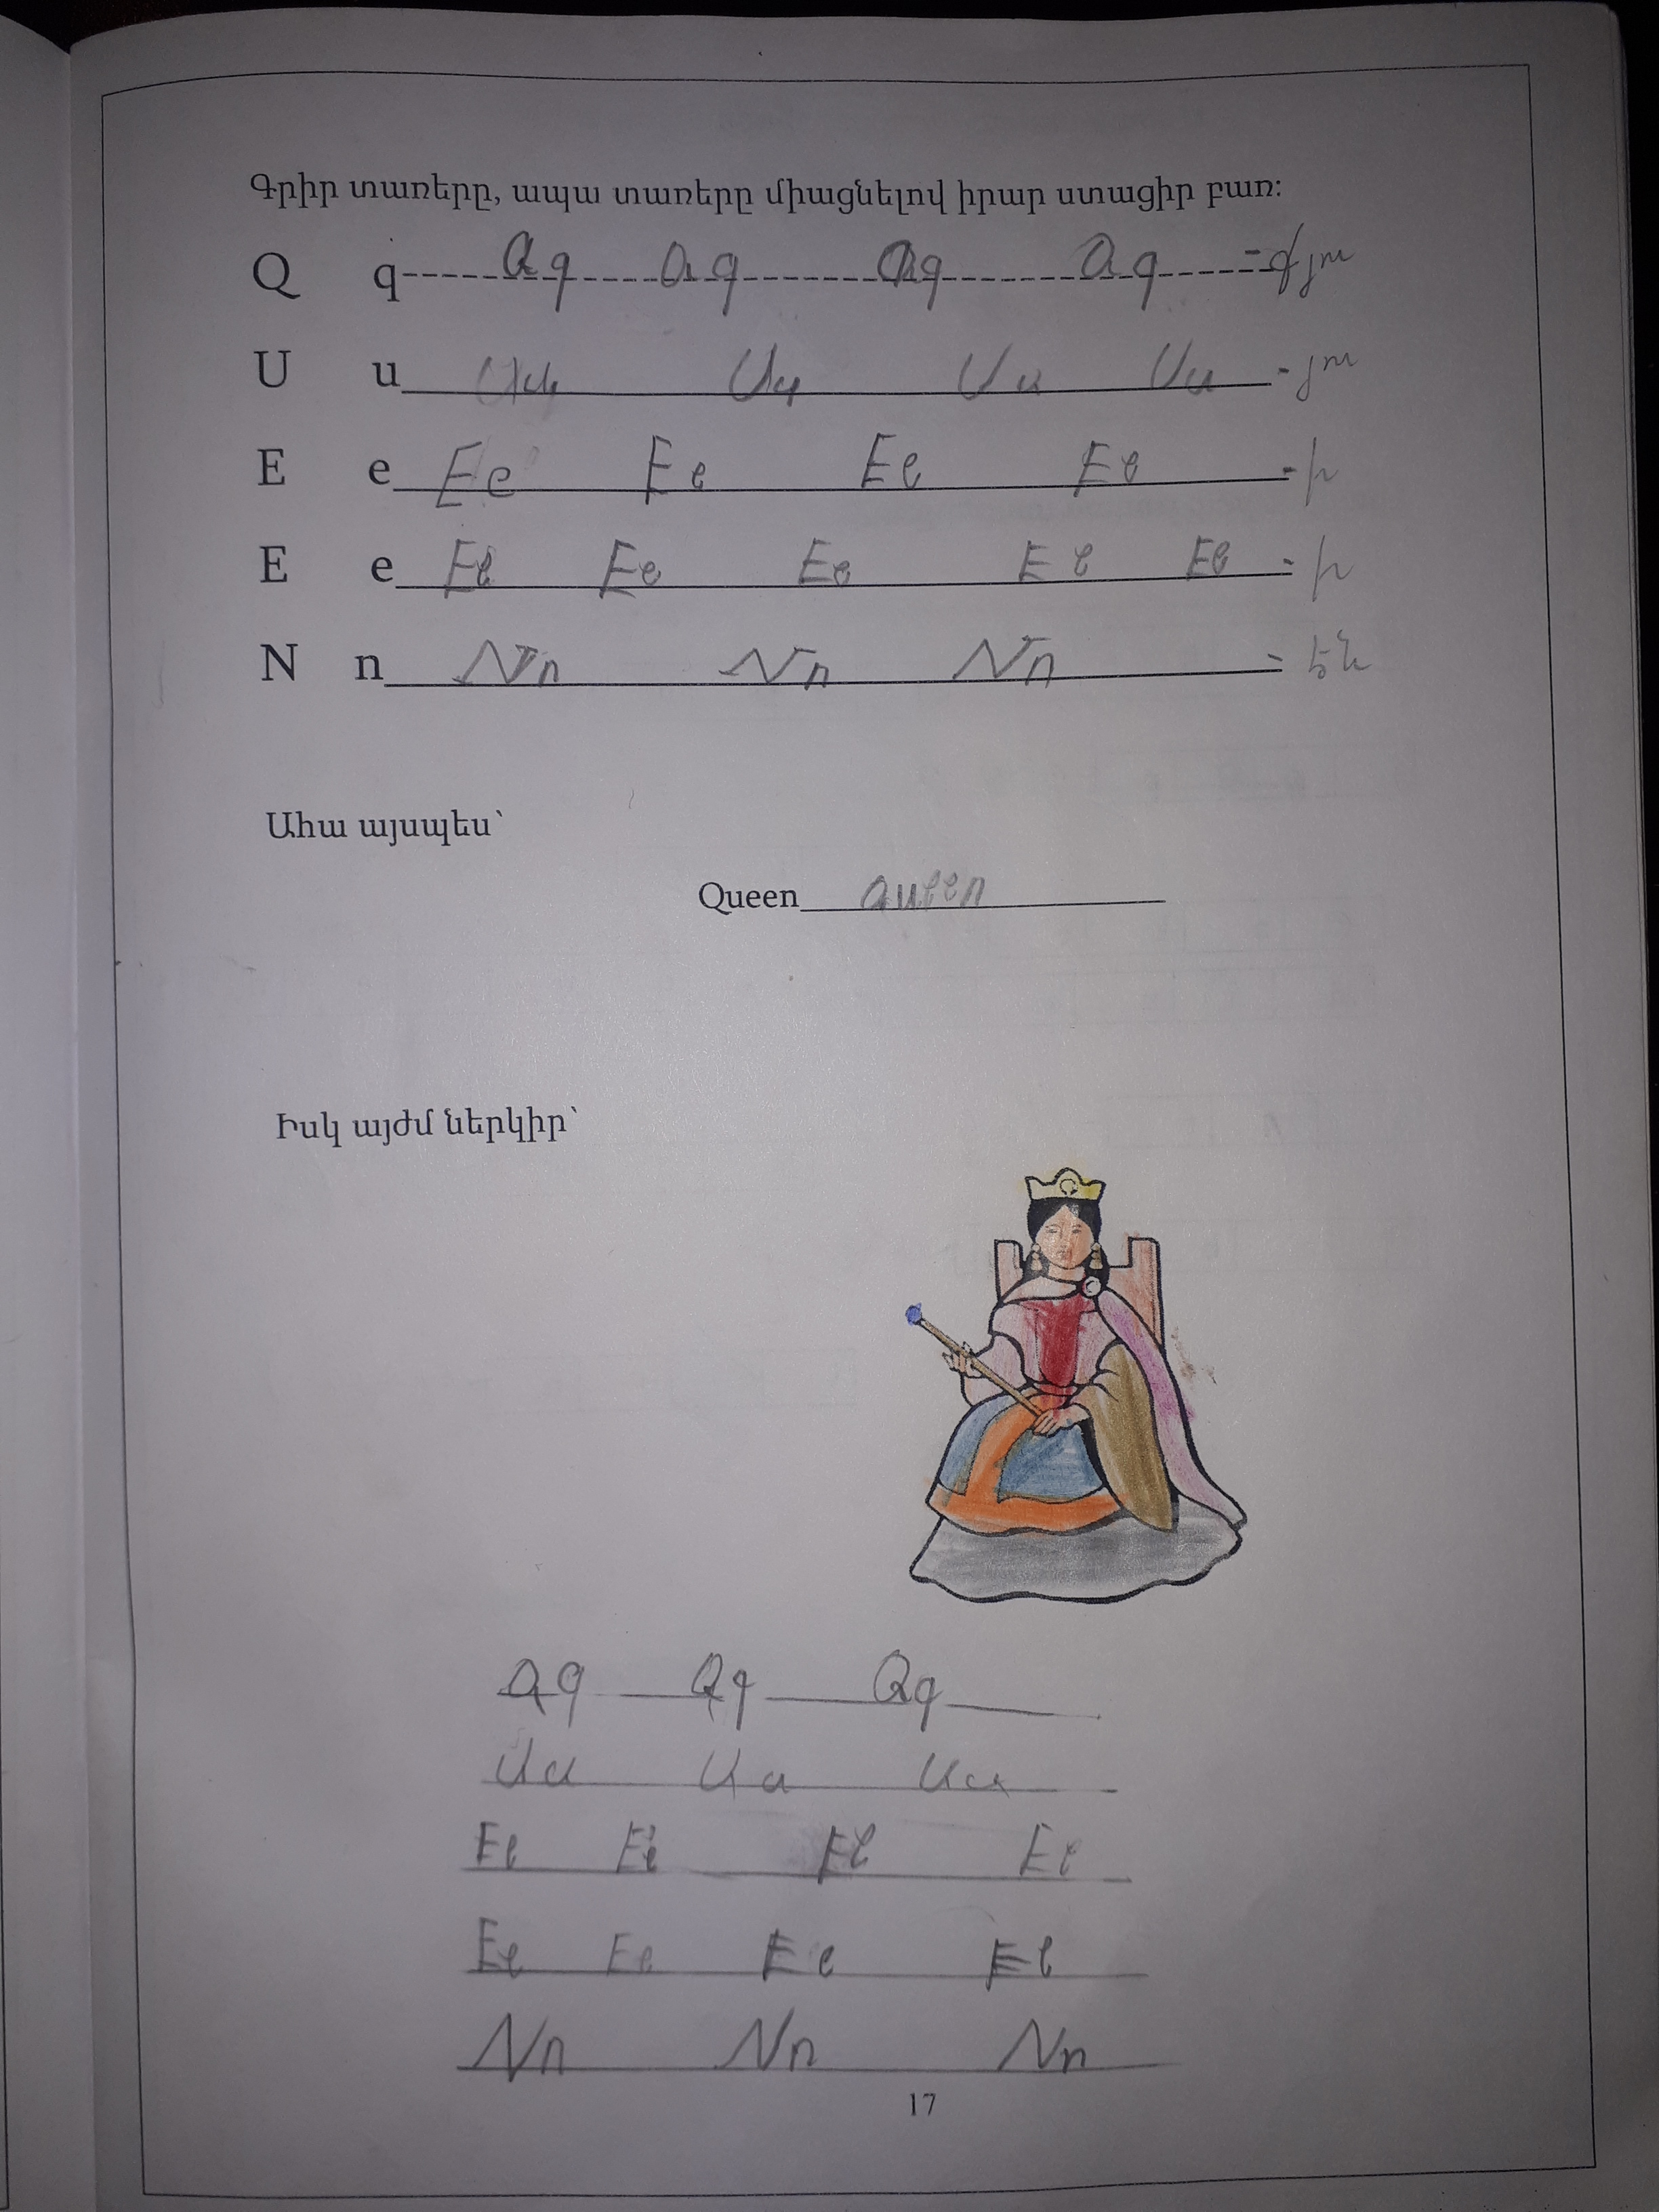 Գրիր տառերը, ապա տառերը միացնելով իրար ստացիր բառ:
Q q-----Qq----Qq-------Qq-------Qq-----=քյու
U u Uu Uu Uu Uu - յու
E e Ee Ee Ee Ee - ի
E e Ee Ee Ee Ee Ee - ի
N n Nn Nn Nn - են
Ահա այսպես՝
Queen Queen
Իսկ այժմ ներկիր՝
Qq Qq Qq
Uu Uu Uu
Ee Ee Ee Ee
Ee Ee Ee Ee
Nn Nn Nn
17